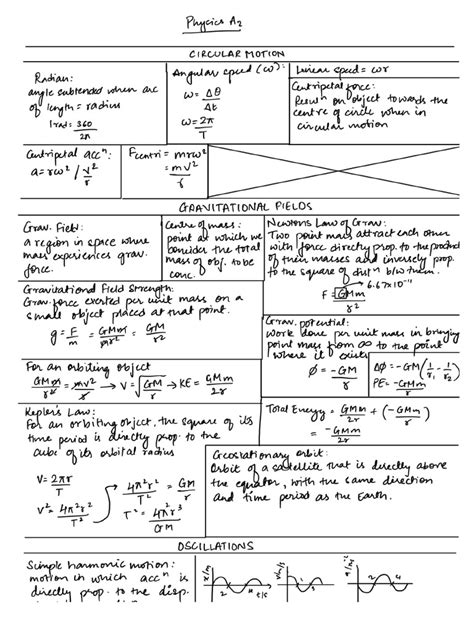 Physics A2
CIRCULAR MOTION
Radian:
angle subtended when arc
of length = radius
1 rad = 360/2π
Angular speed (ω):
ω = Δθ/Δt
ω = 2π/T
Linear speed = ωr
Centripetal force:
Resul^n on object towards the
centre of circle when in
circular motion
Centripetal acc^n:
a = rω² / v²/r
Fcentri = mrω²
= mv²/r
GRAVITATIONAL FIELDS
Grav. Field:
a region in space where
mass experiences grav.
force.
Centre of mass:
point at which we
consider the total
mass of obj. to be
conc.
Newton's Law of Grav:
Two point mass attract each other
with force directly prop. to the product
of their masses and inversely prop.
to the square of dist^n b/w them.
6.67x10^-11
F = GMm/r²
Gravitational Field Strength:
Grav. force exerted per unit mass on a
small object placed at that point.
g = F/m = GMm/mr² = GM/r²
Grav. potential:
Work done per unit mass in bringing
point mass from ∞ to the point
where it exists
ϕ = -GM/r
Δϕ = -GM(1/r₁ - 1/r₂)
PE = -GMm/r
For an orbiting object
GMm/r² = mv²/r → v = √GM/r → KE = GMm/2r
Kepler's Law:
For an orbiting object, the square of its
time period is directly prop. to the
cube of its orbital radius
V = 2πr/T
V² = 4π²r²/T²
4π²r²/T² = GM/r
T² = 4π²r³/GM
Total Energy = GMm/2r + (-GMm/r)
= -GMm/2r
Geostationary orbit:
Orbit of a satellite that is directly above
the equator, with the same direction
and time period as the Earth.
OSCILLATIONS
Simple harmonic motion:
motion in which acc^n is
directly prop. to the disp.
x/m
2
4
t/s
v/m/s
1
3
a/ms^-2
2
4